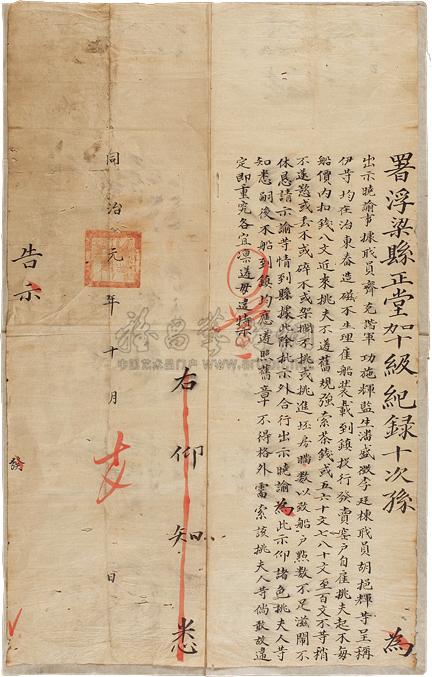 署浮梁縣正堂加十級紀錄十次孫 為
出示曉諭事據職員齊充階軍功施輝監生潘盛徵李廷棟職員胡起輝等呈稱
伊等均在治東春造磁不生理雇船裝載到鎮投行發賣窯户自雇挑夫起不每
船價內扣錢八文近來挑夫不遵舊規強索茶錢或五六十文七八十文至百文不等稍
不遂慾或丢不或碎不或架擱不挑或挑進坯房瞞數以致船户點數不足滋鬧不
休懇請示諭等情到縣據此除批示外合行出示曉諭為此示仰諸色挑夫人等
知悉嗣後不船到鎮均應遵照舊章不得格外需索該挑夫人等倘敢故違
定即重究各宜凛遵毋違特示
右仰知悉
同治元年十月 日
告示
發